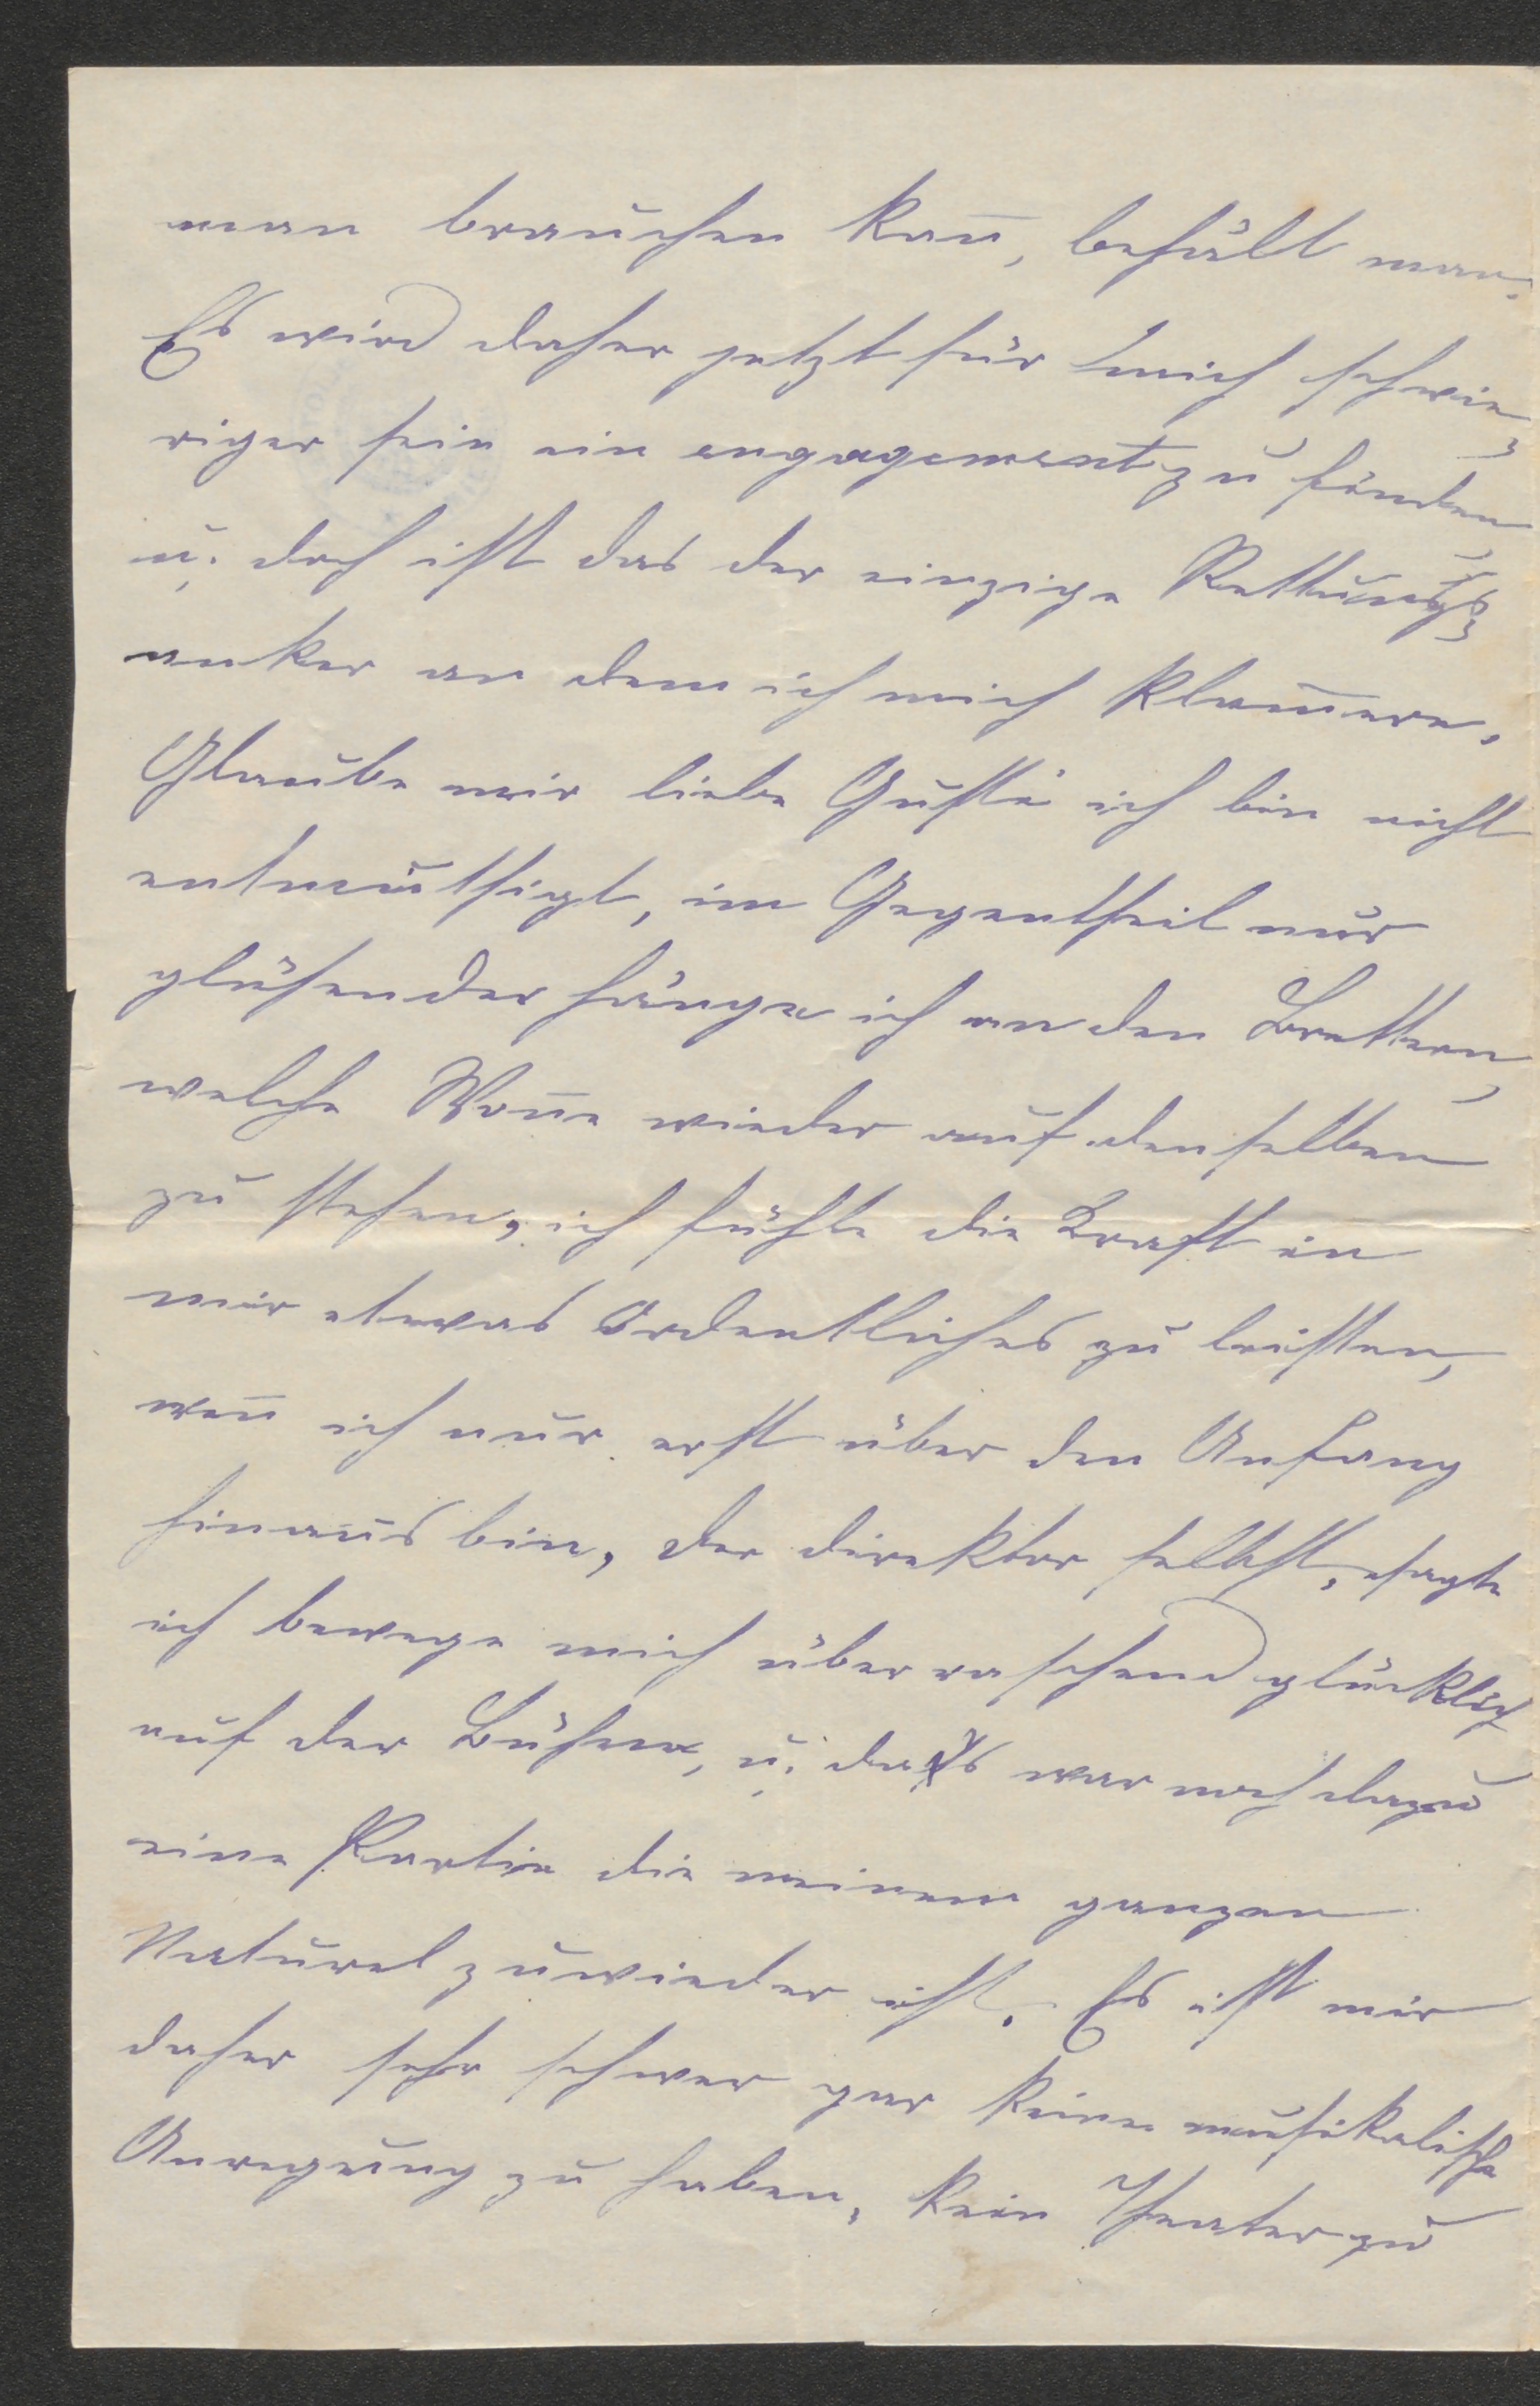 man brauchen kan̄, behält man.
Es wird daher jetzt für mich schwie-
riger sein ein engagement zu finden
u. doch ist das der einzige Rettungs-
anker an dem ich mich klam̄ere.
Glaube mir liebe Gusti ich bin nicht
entmuthigt, im Gegentheil nur
glühender hänge ich an den Brettern,
welche Won̄e wieder auf denselben
zu stehen, ich fühle die Kraft in
mir etwas Ordentliches zu leisten,
wen̄ ich nur erst über den Anfang
hinaus bin, der direktor selbst, sagte
ich bewege mich überraschend glücklich
auf der Bühne, u. das war noch dazu
eine Partie die meinem ganzen
Naturel zuwieder ist. Es ist mir
daher sehr schwer gar keine musikalische
Anregung zu haben, kein Theater zu